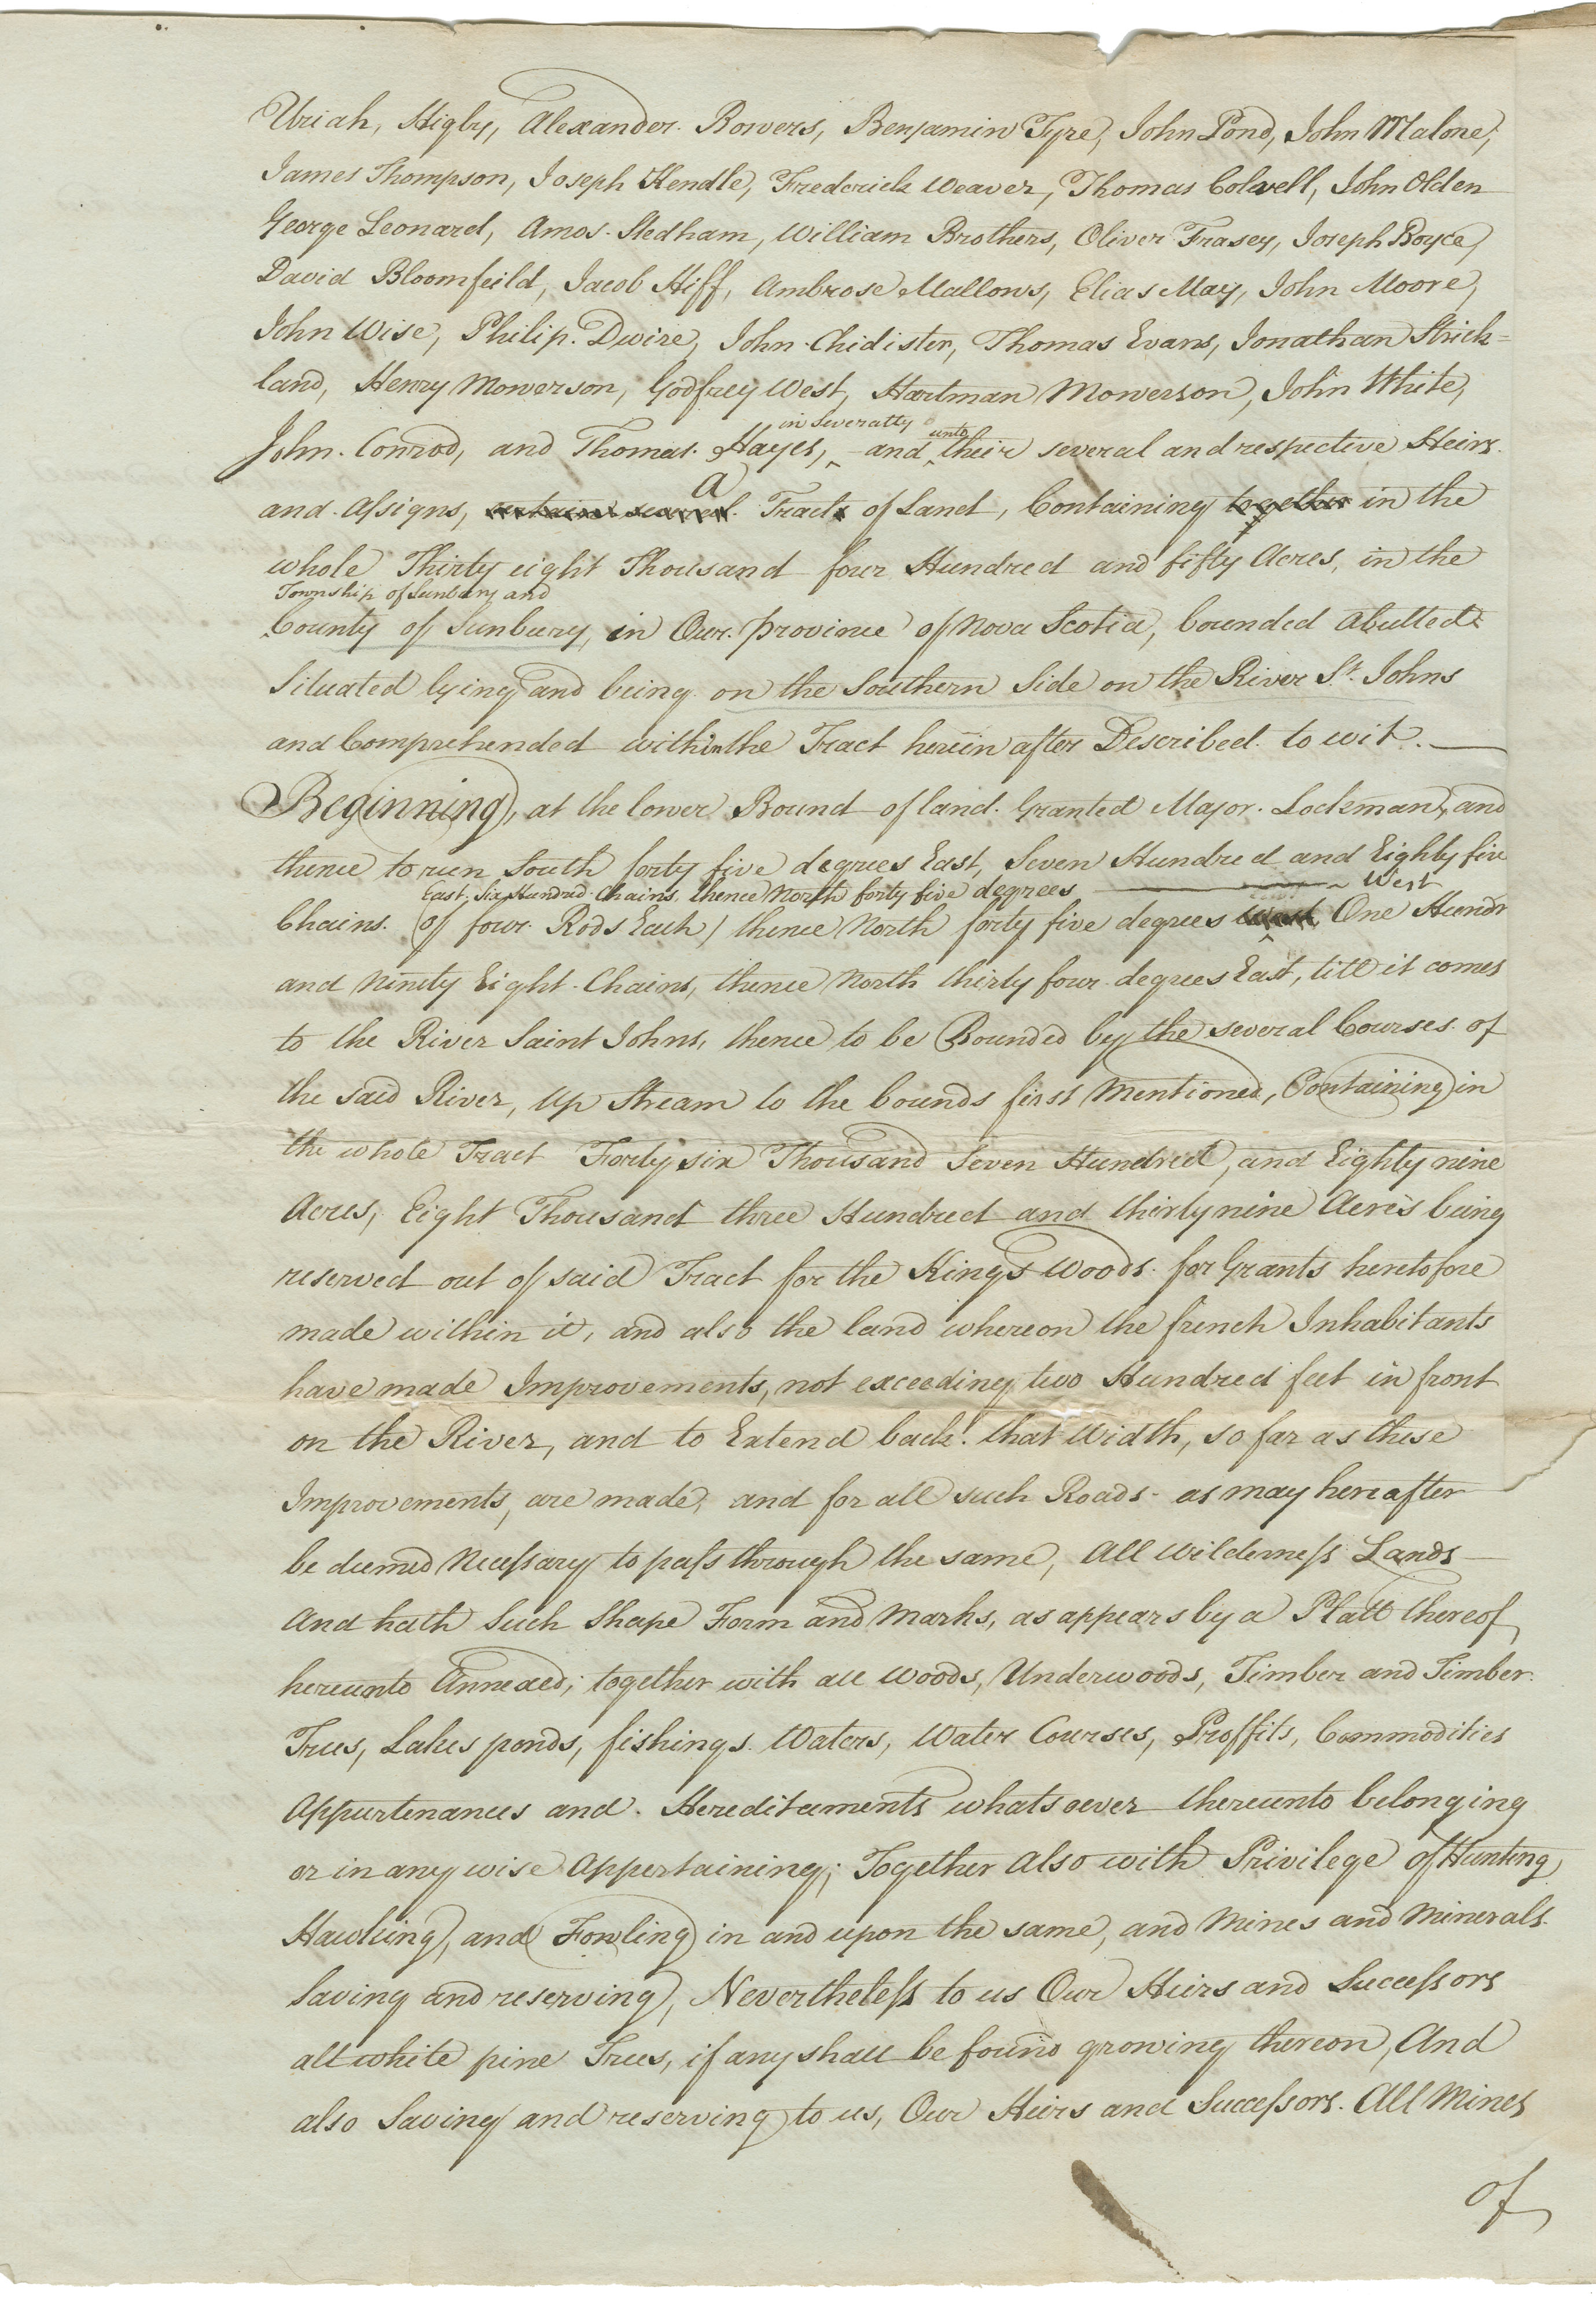 Uriah, Higby, Alexander. Bowers, Benjamin Tyre, John Pond, John Malone,
James Thompson, Joseph Kendle, Frederick Weaver, Thomas Colwell, John Olden
George Leonard, Amos. Stedham, William Brothers, Oliver Frasey, Joseph Boyce,
David Bloomfeild, Jacob Hiff, Ambrose Mallows, Elias May, John Moore,
John Wise, Philip. Dwire, John. Chidister, Thomas Evans, Jonathan Strick=
land, Henry Mowerson, Godfrey West, Hartman Mowerson, John White,
in Severalty unto
John. Conrod, and Thomas. Hayes, ‸ and ‸ their several and respective Heirs.
a
and Assigns, certain several Tracts of Land, Containing together in the
whole Thirty eight Thousand four Hundred and fifty Acres, in the
Township of Sunbury and
County of Sunbury, in Our. province of Nova Scotia, bounded Abutted
Situated lying and being on the Southern Side on the River St. Johns
and Comprehended within the Tract herein after Described. to wit. —
Beginning, at the lower Bound of land. Granted Major. Lockman, and
thence to run South forty five degrees East, Seven Hundred and Eighty five
East, Six Hundred Chains, thence North forty five degrees — West
Chains. (of four. Rods Each) thence North forty five degrees One Hundr
and Ninety Eight. Chains, thence North thirty four degrees East, till it comes
to the River Saint Johns, thence to be Bounded by the several Courses of
the said River, up Stream to the bounds first Mentioned, Containing in
the whole Tract Forty six Thousand Seven Hundred, and Eighty nine
Acres, Eight Thousand three Hundred and thirty nine Acres being
reserved out of said Tract for the Kings Woods. for Grants heretofore
made within it, and also the land whereon the french Inhabitants
have made Improvements, not exceeding two Hundred feet in front
on the River, and to Extend back. that Width, so far as these
Improvements, are made, and for all such Roads as may hereafter
be deemed Necessary to pass through the same, All Wilderness Lands —
And hath Such Shape Form and Marks, as appears by a Platt thereof
hereunto Annexed; together with all woods, Underwoods, Timber and Timber
Trees, Lakes ponds, fishings. Waters, Water Courses, Proffits, Commodities
Appurtenances and. Hereditaments whatsoever thereunto belonging
or in any wise Appertaining; Together Also with Privilege of Hunting
Hawking, and Fowling in and upon the same, and Mines and Minerals.
Saving and reserving, Nevertheless to us Our Heirs and Successors
all white pine Trees, if any shall be found growing thereon, And
also Saving and reserving to us, Our Heirs and Successors. All Mines
of